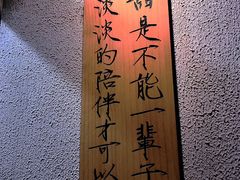 是不能一輩子
淡淡的陪伴才可以